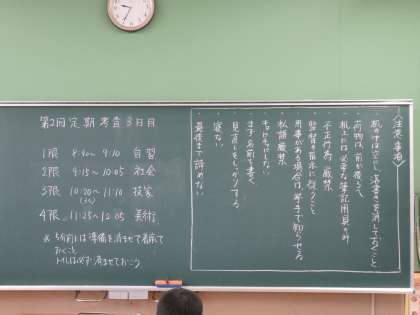 第2回定期考査3日目
1限 8:40〜9:10 自習
2限 9:15〜10:05 社会
3限 10:20〜11:10 技家
4限 11:25〜12:05 美術
※ 5分前には準備を済ませて着席して
おくこと
トイレは必ず済ませておこう
〈注意事項〉
・机の中は空に、落書きは消しておくこと
・荷物は前か後ろへ
・机上には必要な筆記用具のみ
・不正行為厳禁
・監督の指示に従うこと
・用事がある場合は挙手で知らせる
・私語厳禁
・キョロキョロしない
・まず名前を書く
・見直しをしっかりする
・寝ない
・最後まで諦めない